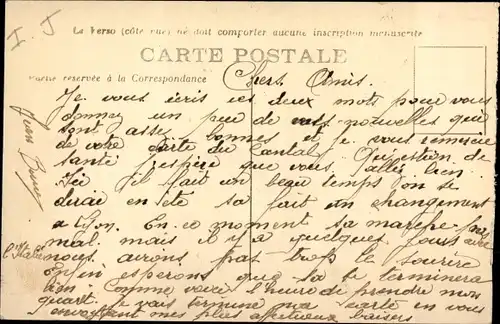 I. J
Le Verso (côté vue) ne doit comporter aucune inscription manuscrite
CARTE POSTALE
Partie réservée à la Correspondance
Chers Amis.
Je vous écris ces deux mots pour vous
donner un peu de nouvelles que
sont assez bonnes et je vous remercie
de votre carte du Cantal. Question de
santé j'espère que vous allez bien.
Ici il fait un beau temps on se
dirait en été sa fait un changement
a Lyon. En ce moment sa marche pas
mal. mais il y a quelques jours avec
l'Italie nous avons pas trop le sourire
enfin esperons que sa la terminera
bien. Comme voici l'heure de prendre mon
quart. Je vais termine ma carte en vous
envoyant mes plus affectueux baisers
Jean